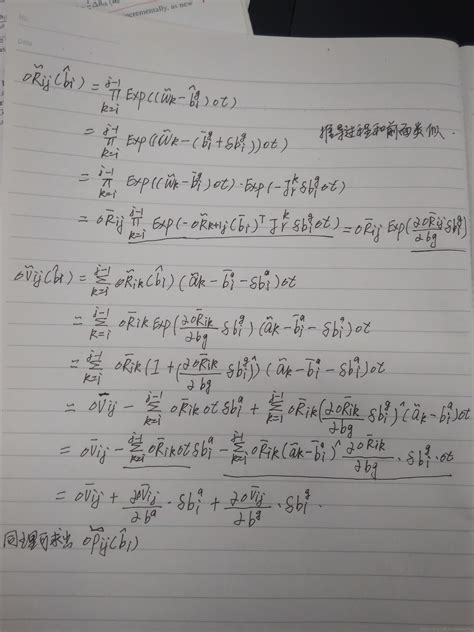 incrementally, as new
Date
oR̃ij(b̂i) = ∏_{k=i}^{j-1} Exp((w̃k - b̂i^g)ot)
= ∏_{k=i}^{j-1} Exp((w̃k - (b̄i^g + δbi^g))ot) 推导过程和前面类似.
= ∏_{k=i}^{j-1} Exp((w̃k - b̄i^g)ot)·Exp(-Jr^k δbi^g ot)
= oR̄ij ∏_{k=i}^{j-1} Exp(-oR̄k+1j(b̄i)^T Jr^k δbi^g ot) = oR̄ij Exp(∂oR̄ij/∂bg δbi^g)
oṼij(b̂i) = ∑_{k=i}^{j-1} oR̃ik(b̂i)(ãk - b̄i^a - δbi^a)ot
= ∑_{k=i}^{j-1} oR̄ik Exp(∂oR̄ik/∂bg δbi^g)(ãk - b̄i^a - δbi^a)ot
= ∑_{k=i}^{j-1} oR̄ik(I + (∂oR̄ik/∂bg δbi^g)^)(ãk - b̄i^a - δbi^a)ot
= oV̄ij - ∑_{k=i}^{j-1} oR̄ik ot δbi^a + ∑_{k=i}^{j-1} oR̄ik(∂oR̄ik/∂bg δbi^g)^(ãk - bi^a)ot
= oV̄ij - ∑_{k=i}^{j-1} oR̄ik ot δbi^a - ∑_{k=i}^{j-1} oR̄ik(ãk - b̄i^a)^ ∂oR̄ik/∂bg · δbi^g · ot
= oV̄ij + ∂oV̄ij/∂b^a · δbi^a + ∂oV̄ij/∂b^g · δbi^g.
同理可求出 op̃ij(b̂i)